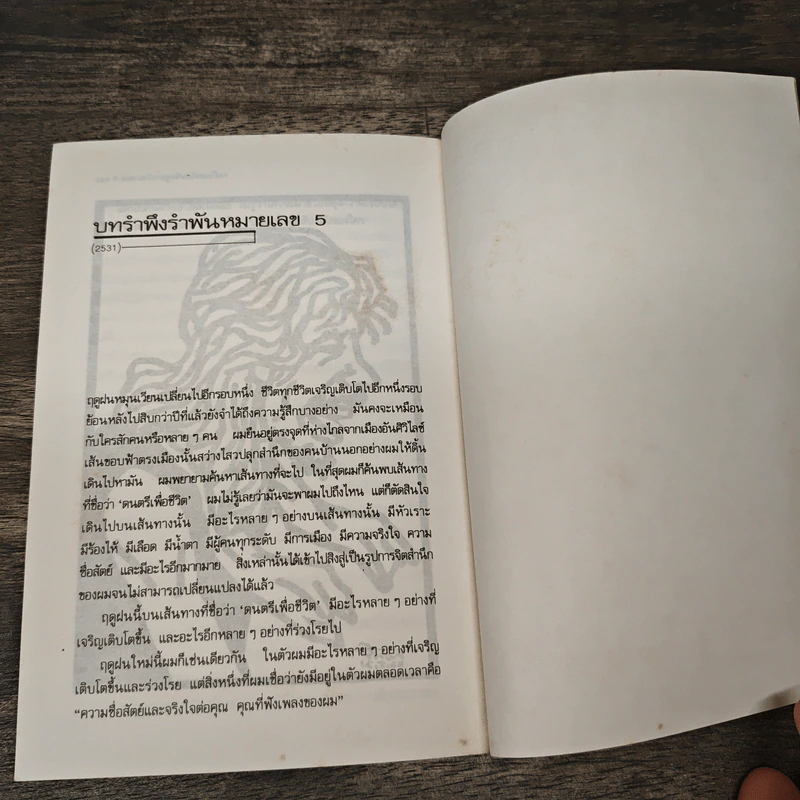 บทรำพึงรำพันหมายเลข 5
(2531)
ฤดูฝนหมุนเวียนเปลี่ยนไปอีกรอบหนึ่ง ชีวิตทุกชีวิตเจริญเติบโตไปอีกหนึ่งรอบ
ย้อนหลังไปสิบกว่าปีที่แล้วยังจำได้ถึงความรู้สึกบางอย่าง มันคงจะเหมือน
กับใครสักคนหรือหลาย ๆ คน ผมยืนอยู่ตรงจุดที่ห่างไกลจากเมืองอันศิวิไลซ์
เส้นขอบฟ้าตรงเมืองนั้นสว่างไสวปลุกสำนึกของคนบ้านนอกอย่างผมให้ดั้น
เดินไปหามัน ผมพยายามค้นหาเส้นทางที่จะไป ในที่สุดผมก็ค้นพบเส้นทาง
ที่ชื่อว่า ‘ดนตรีเพื่อชีวิต’ ผมไม่รู้เลยว่ามันจะพาผมไปถึงไหน แต่ก็ตัดสินใจ
เดินไปบนเส้นทางนั้น มีอะไรหลาย ๆ อย่างบนเส้นทางนั้น มีหัวเราะ
มีร้องไห้ มีเลือด มีน้ำตา มีผู้คนทุกระดับ มีการเมือง มีความจริงใจ ความ
ซื่อสัตย์ และมีอะไรอีกมากมาย สิ่งเหล่านั้นได้เข้าไปสิงสู่เป็นรูปการจิตสำนึก
ของผมจนไม่สามารถเปลี่ยนแปลงได้แล้ว
ฤดูฝนนี้บนเส้นทางที่ชื่อว่า ‘ดนตรีเพื่อชีวิต’ มีอะไรหลาย ๆ อย่างที่
เจริญเติบโตขึ้น และอะไรอีกหลาย ๆ อย่างที่ร่วงโรยไป
ฤดูฝนใหม่นี้ผมก็เช่นเดียวกัน ในตัวผมมีอะไรหลาย ๆ อย่างที่เจริญ
เติบโตขึ้นและร่วงโรย แต่สิ่งหนึ่งที่ผมเชื่อว่ายังมีอยู่ในตัวผมตลอดเวลาคือ
“ความซื่อสัตย์และจริงใจต่อคุณ คุณที่ฟังเพลงของผม”